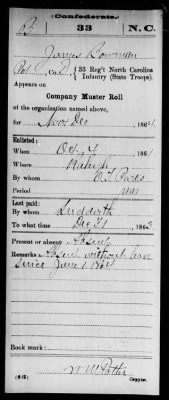 Confederate.
B 33 N.C.
James Bowman
Co. D, 33 Reg't North Carolina
Infantry (State Troops).
Appears on
Company Muster Roll
of the organization named above,
for Nov & Dec, 1864.
Enlisted:
When Oct 4, 186
Where Raleigh
By whom O. T. Parks
Period war
Last paid:
By whom
To what time Dec 31, 1863
Present or absent Absent
Remarks: Absent without leave
since June 1 1864
Book mark:
(642)
Copyist.